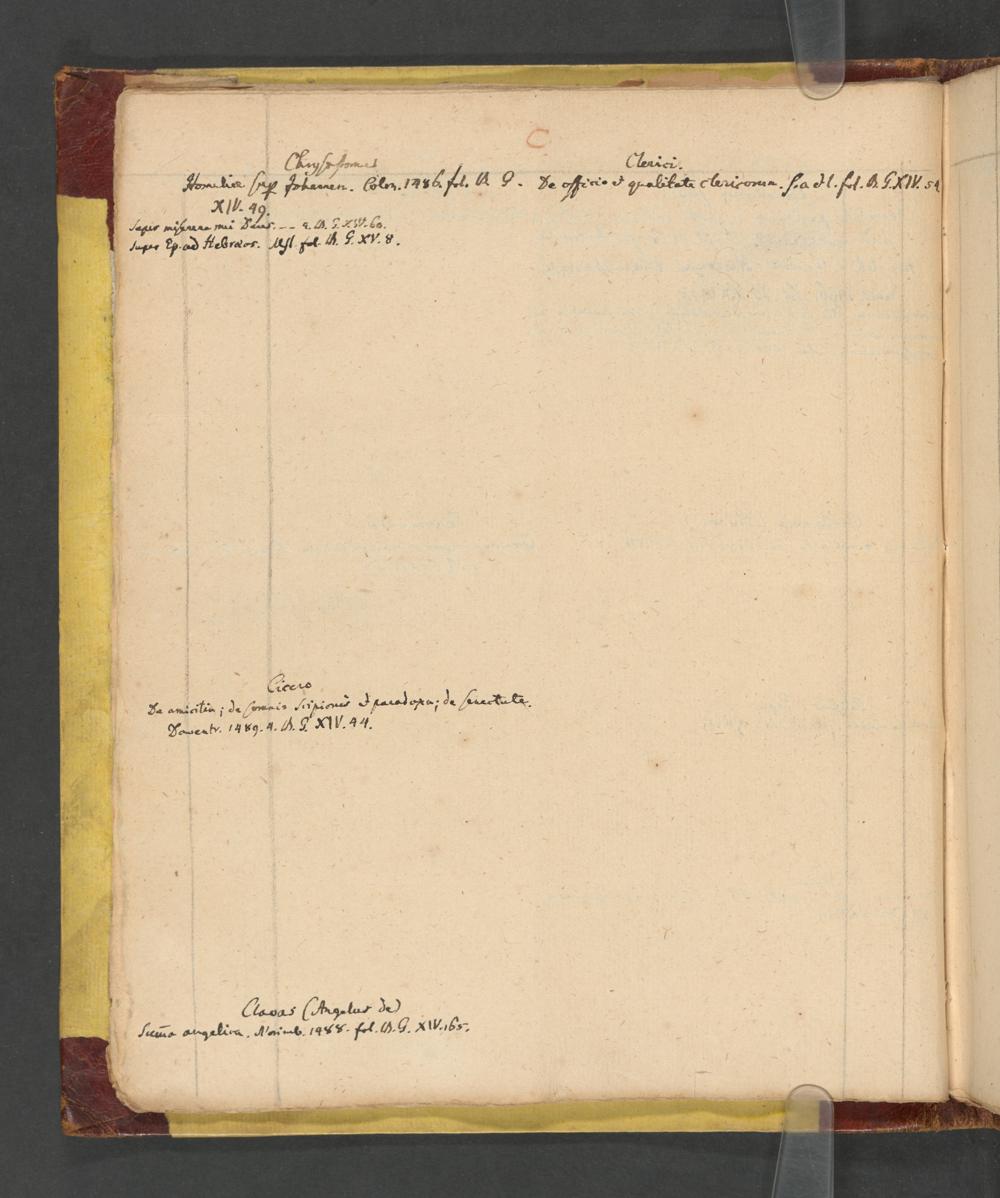 C
Chrysostomus
Homeliæ sup Johannem. Colon. 1486. fol. B. G.
XIV. 49.
Super miserere mei Deus. -- 4. B. G. XIV. 60.
Super Ep. ad Hebræos. Mst. fol. B. G. XV. 8.
Clerici.
De officio et qualitate clericorum. s. a et l. fol. B. G. XIV. 54
Cicero
De amicitia; de somnio Scipionis et paradoxa; de senectute.
Daventr. 1489. 4. B. G. XIV. 44.
Clavas (Angelus de)
Summa angelica. Norimb. 1488. fol. B. G. XIV. 165.